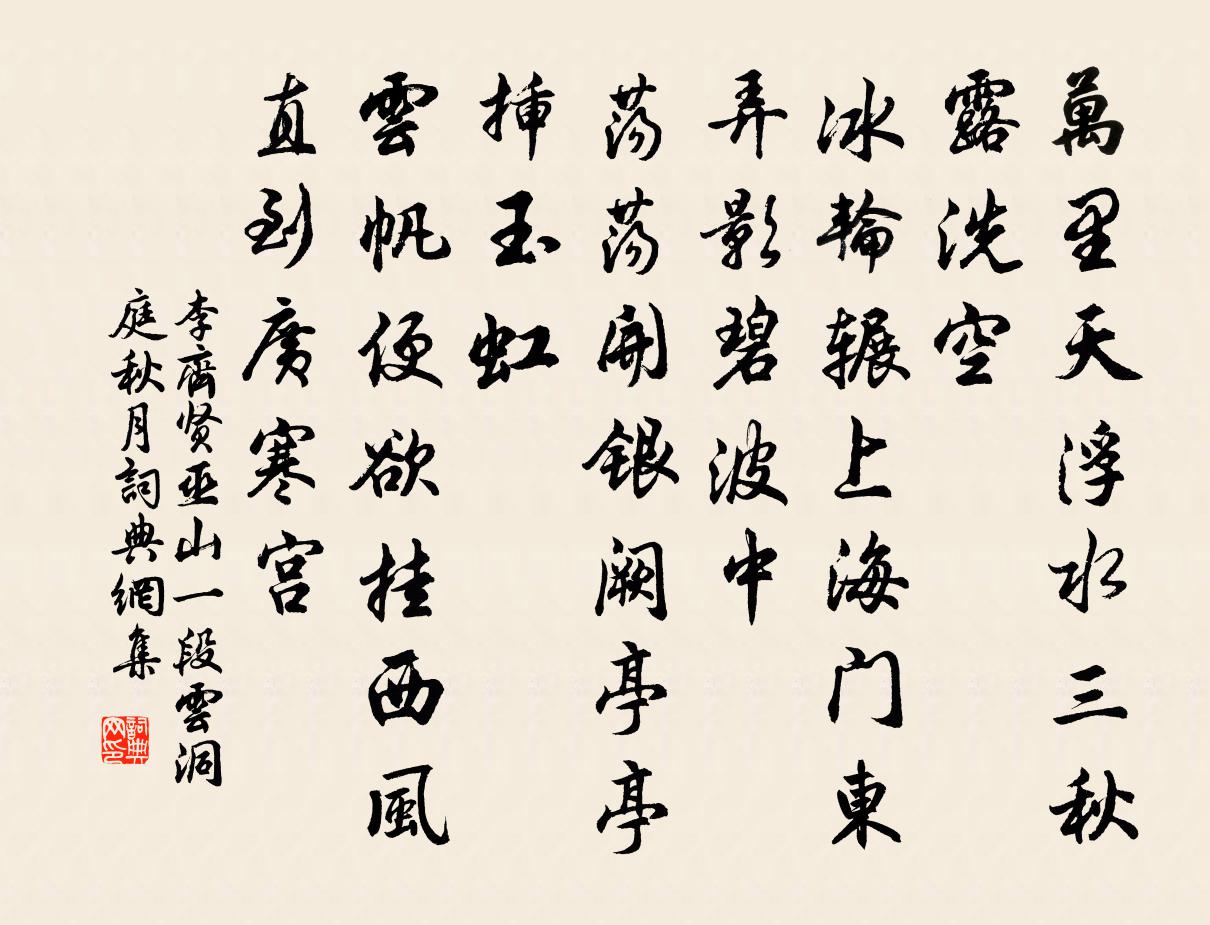 萬里天浮水三秋
露洗空
冰輪辗上海門東
弄影碧波中
蕩蕩開銀阙亭亭
挿玉虹
雲帆便欲挂西風
直到廣寒宫
李齊贤巫山一段雲洞
庭秋月詞典網集
詞典网印